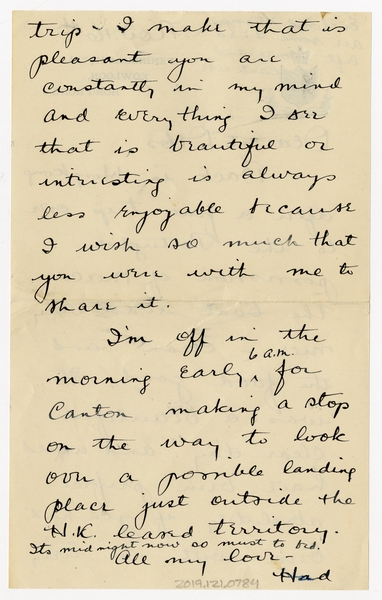 trip - I make that is
pleasant you are
constantly in my mind
and everything I see
that is beautiful or
intriesting is always
less enjoyable because
I wish so much that
you were with me to
share it.
I'm off in the
6 a.m.
morning early, for
Canton making a stop
on the way to look
over a possible landing
place just outside the
H.K. leased territory.
Its midnight now so must to bed.
All my love -
Had
2019.121.0784